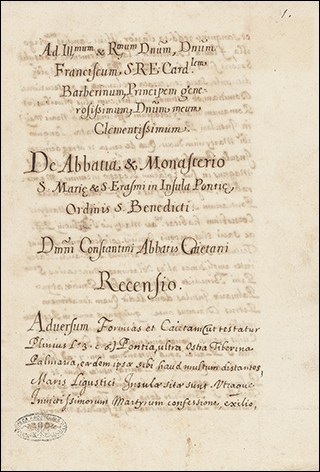 1.
Ad Ill.mum & R.mum Dnũm, Dnũm
Franciscum, S.R.E. Card.lem
Barberinum, Principem gene-
rosissimum, Dnũm meum
Clementissimum.
De Abbatia & Monasterio
S. Marię & S. Erasmi in Insula Pontię,
Ordinis S. Benedicti.
Dmni Constantini Abbatis Caietani
Recensio.
Adversum Formias et Caietam (ut testatur
Plinius L. 3. c. 6.) Pontia, ultra Ostia Tiberina
Palmaria, eędem ipsę sibi haud multum distantes,
Maris Ligustici Insulę sitę sunt. Utraque
Invictissimorum Martyrum confessione, exilio,